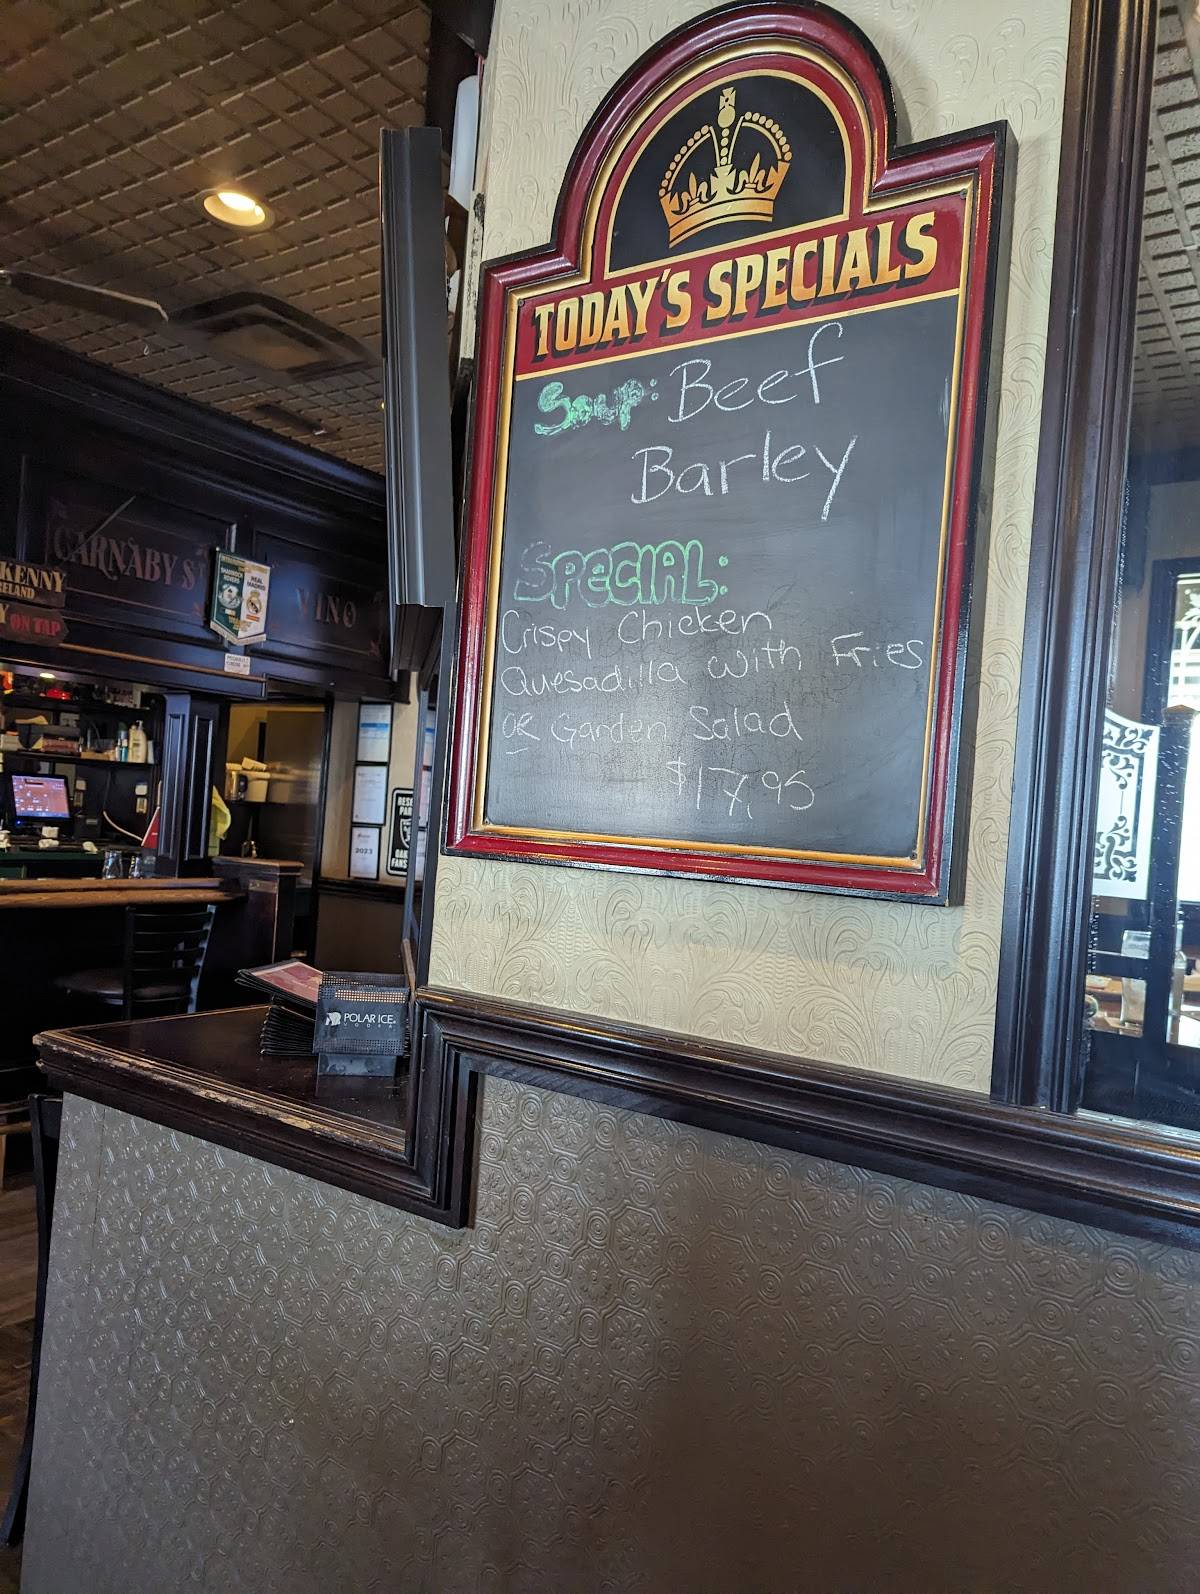 TODAY'S SPECIALS
Soup: Beef
Barley
SPECIAL:
Crispy Chicken
Quesadilla with Fries
OR Garden Salad
$17.95
CARNABY ST
VINO
KENNY
ON TAP
SHAMROCK
ROVERS
REAL
MADRID
2023
POLAR ICE
VODKA